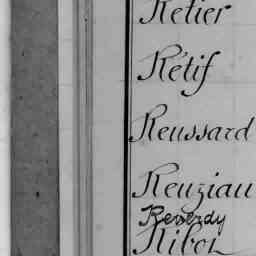 Retier
Rétif
Reussard
Reuziau
Reverdy
Ribot